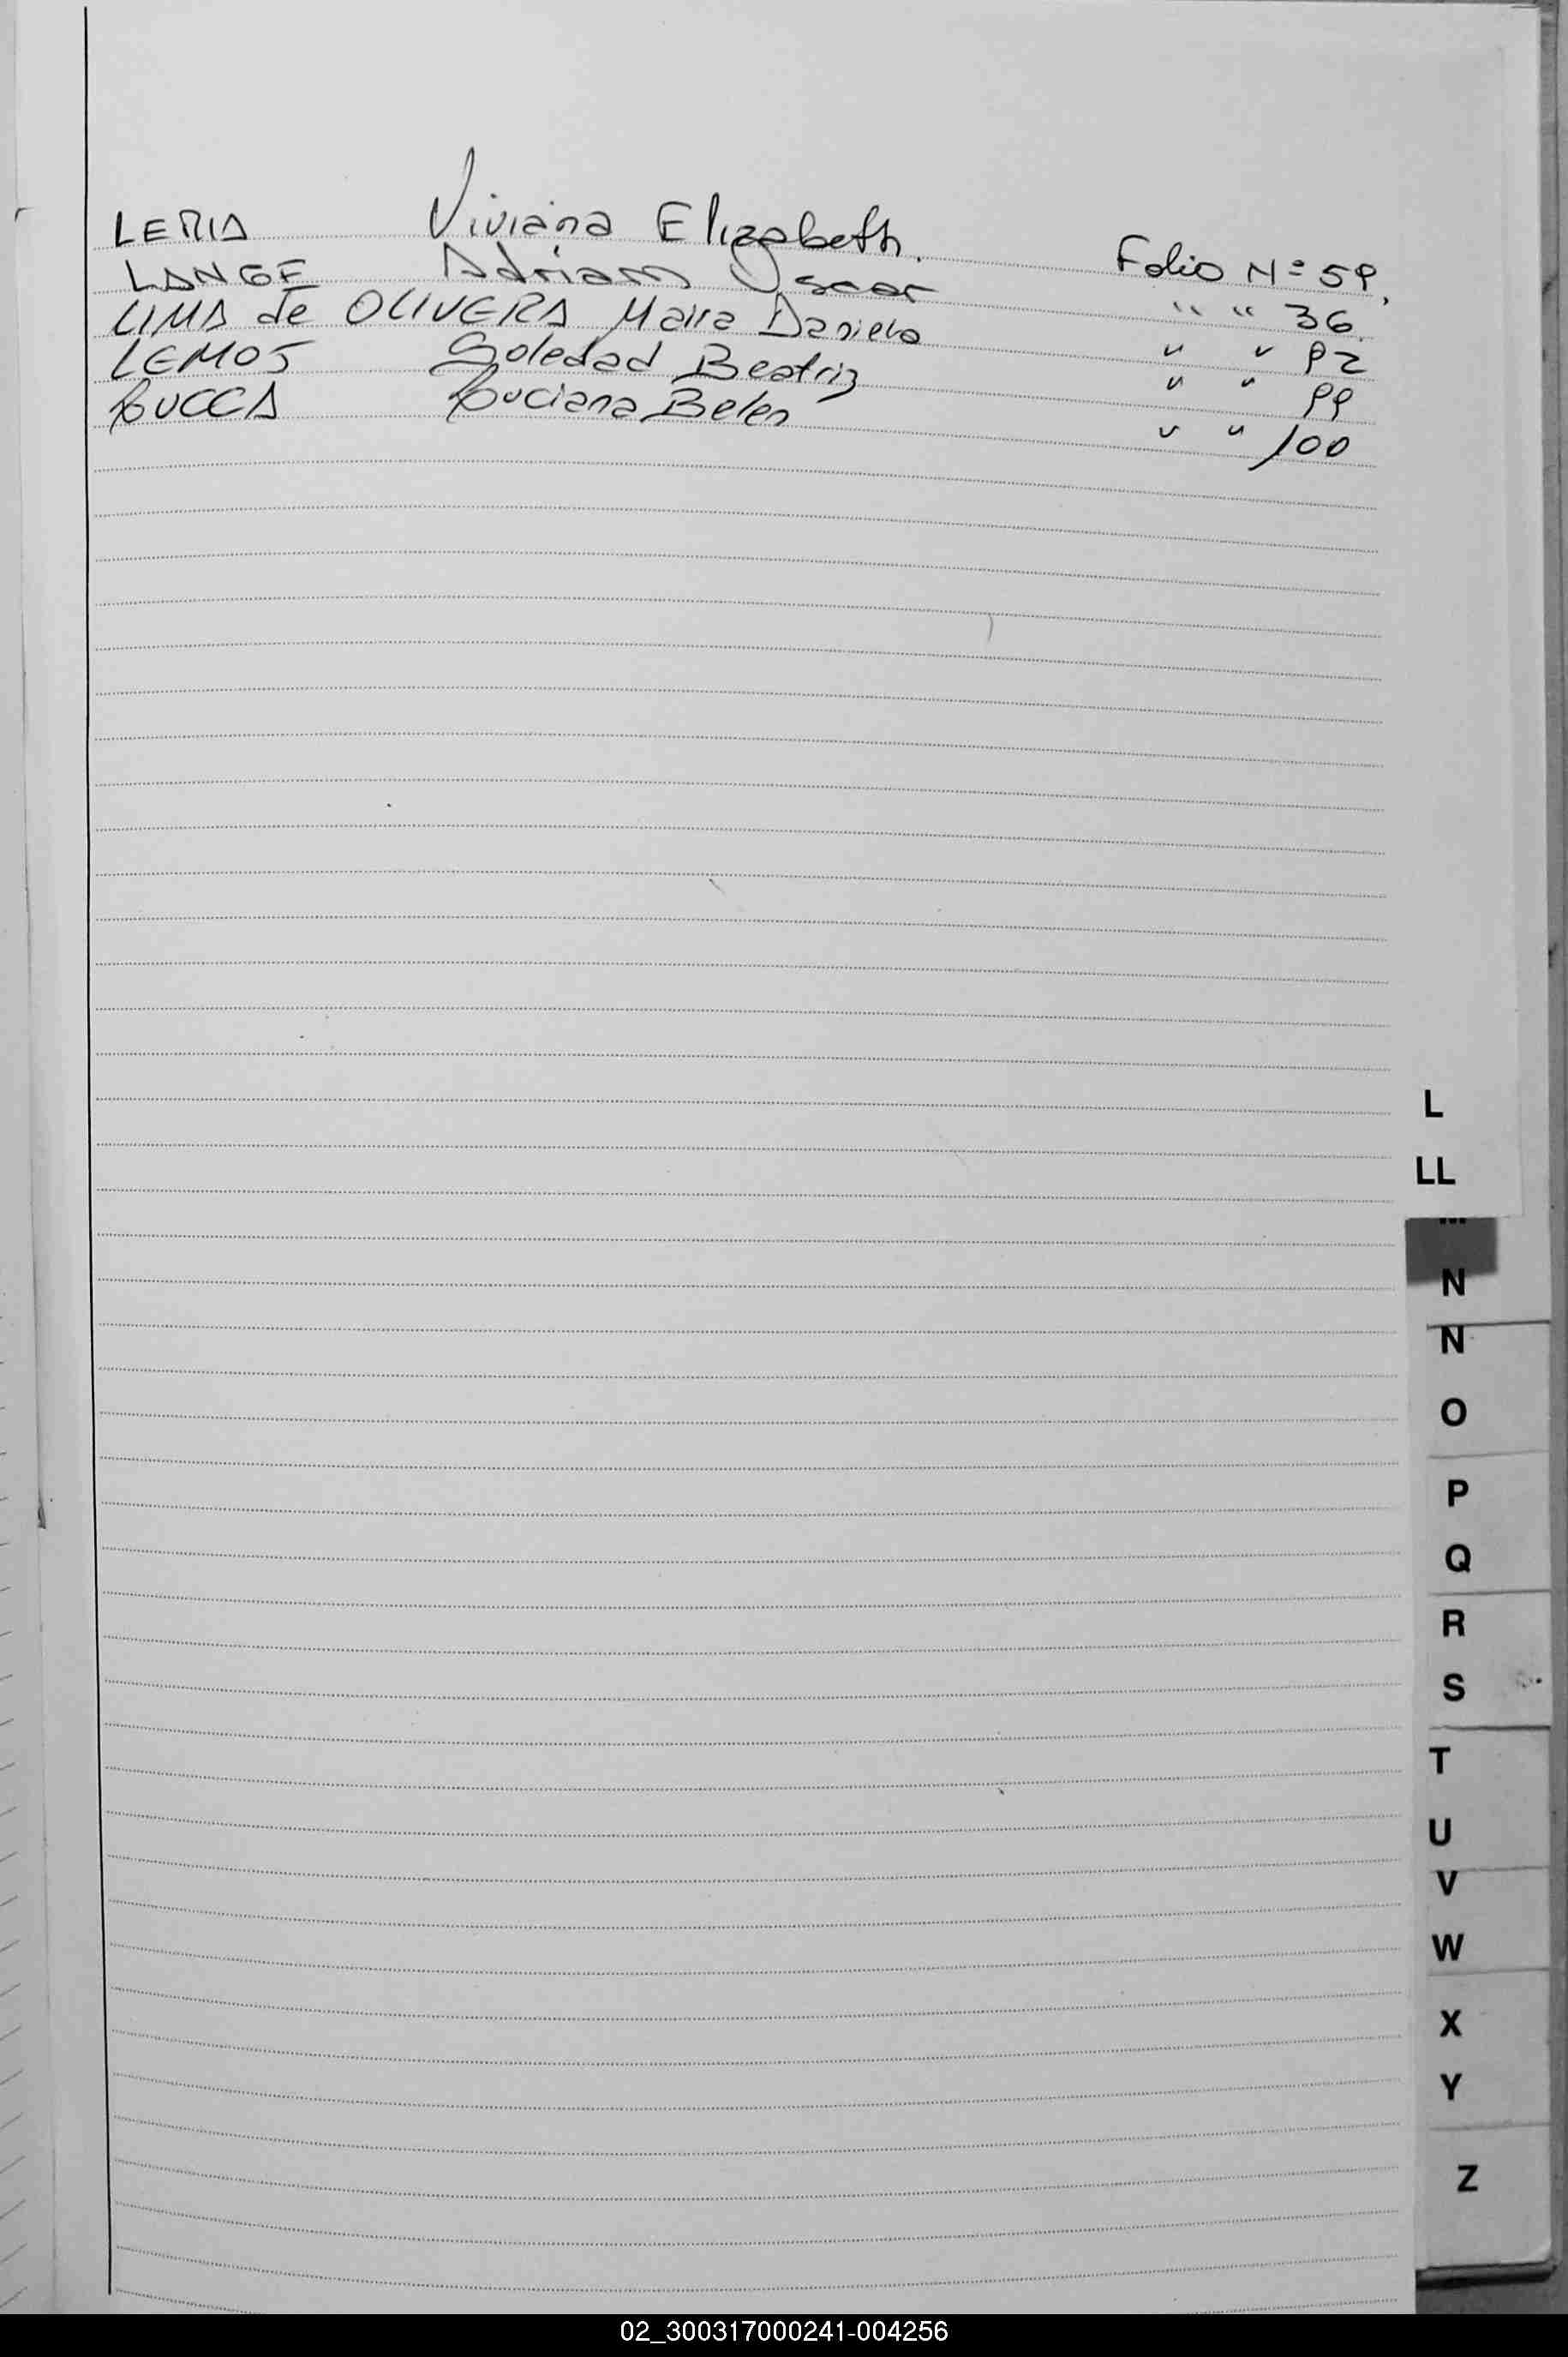 LERIA Viviana Elizabeth. Folio Nº 59.
LANGE Adrian Oscar " " 36.
LIMA de OLIVERA Maira Daniela " " 92
LEMOS Soledad Beatriz " " 99
LUCCA Luciana Belen " " 100
L
LL
M
N
N
O
P
Q
R
S
T
U
V
W
X
Y
Z
02_300317000241-004256